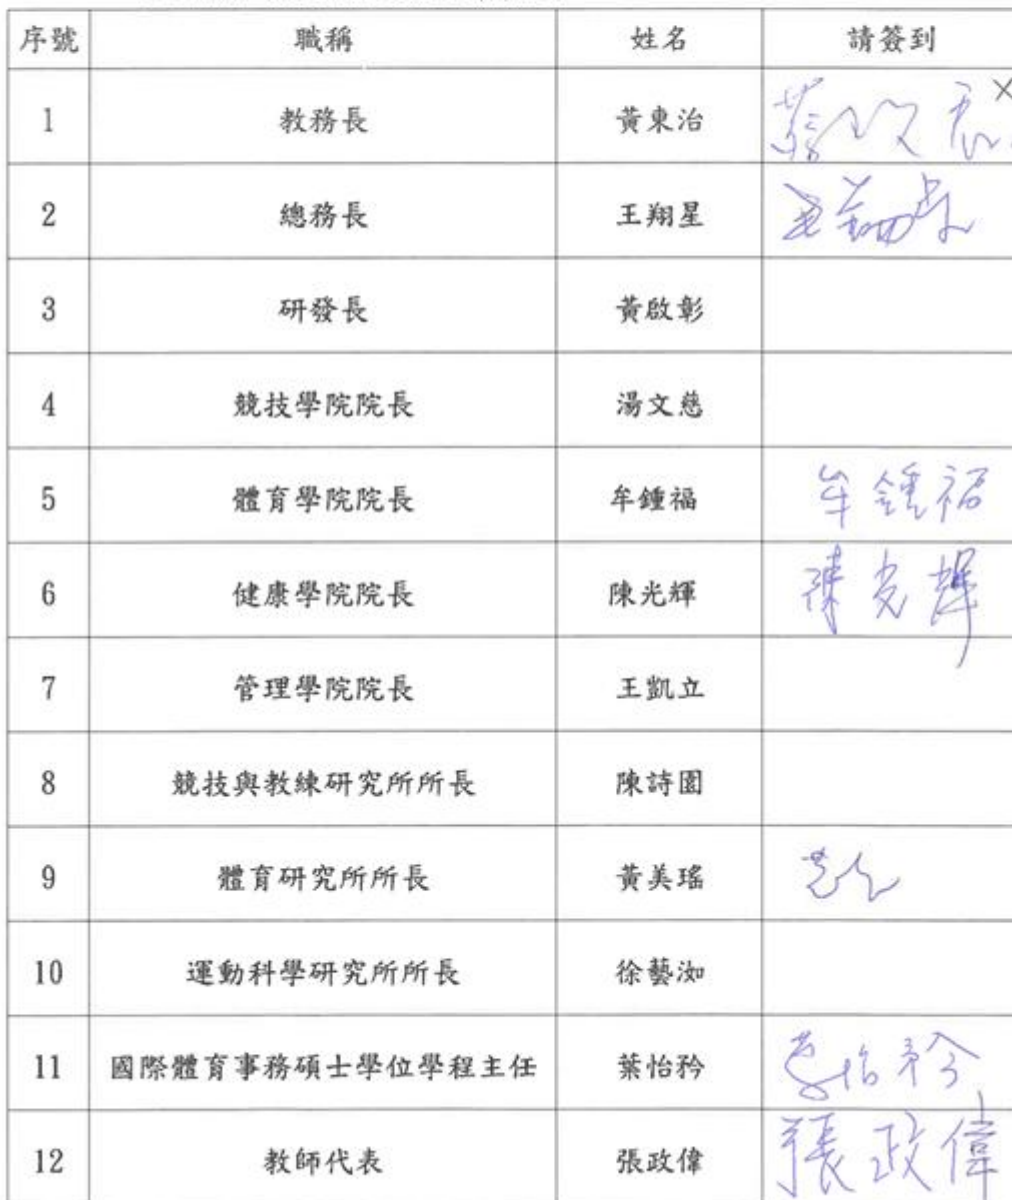 序號 職稱 姓名 請簽到
1 教務長 黃東治
2 總務長 王翔星
3 研發長 黃啟彰
4 競技學院院長 湯文慈
5 體育學院院長 牟鍾福 牟鍾福
6 健康學院院長 陳光輝 陳光輝
7 管理學院院長 王凱立
8 競技與教練研究所所長 陳詩園
9 體育研究所所長 黃美瑤
10 運動科學研究所所長 徐藝洳
11 國際體育事務碩士學位學程主任 葉怡矜 葉怡矜
12 教師代表 張政偉 張政偉